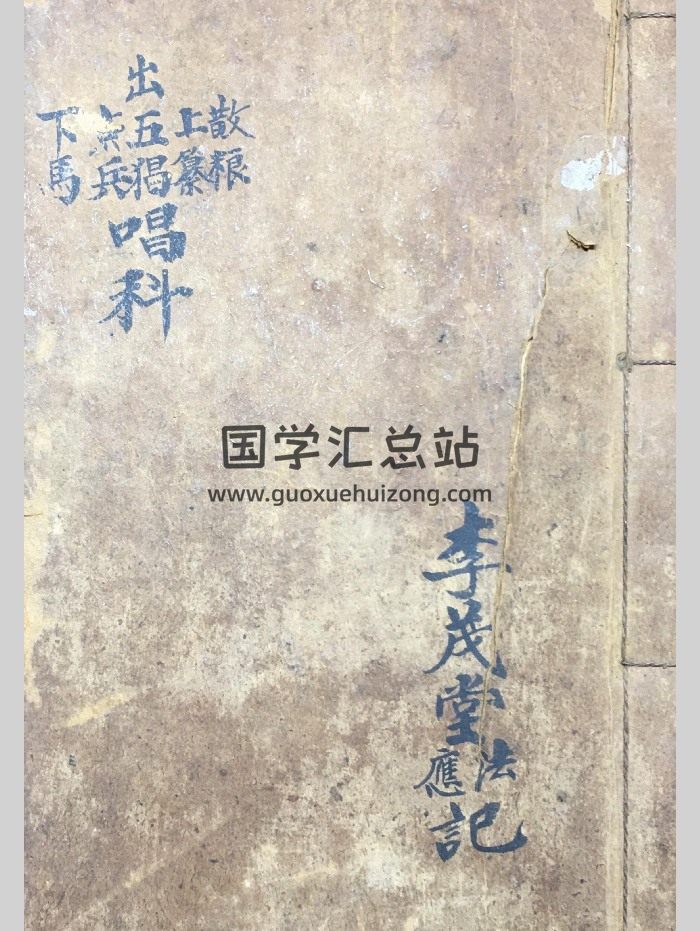 散粮
上纂
出五猖
点兵
下馬
唱科
国学汇总站
www.guoxuehuizong.com
李茂堂
法應
記